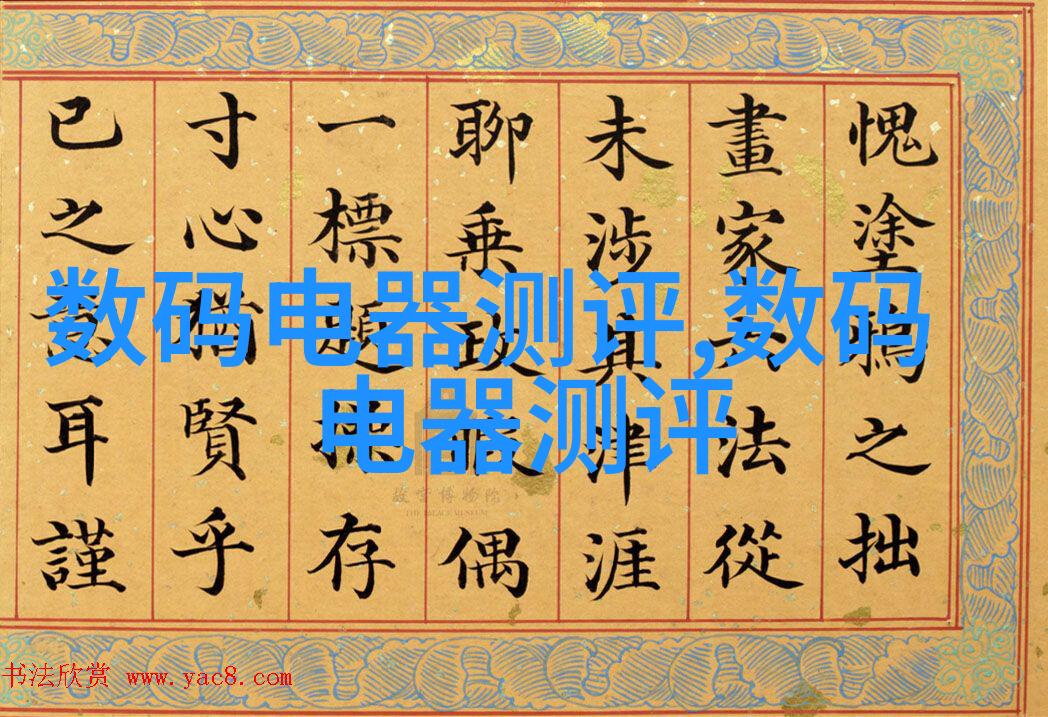 愧塗鴉之拙
畫家六法從
未涉其津涯
聊乘政暇偶
一標題存
寸心猶賢乎
已之意耳謹
数码电器测评,数码
电器测评
故宫博物院
THE PALACE MUSEUM
书法欣赏 www.yac8.com